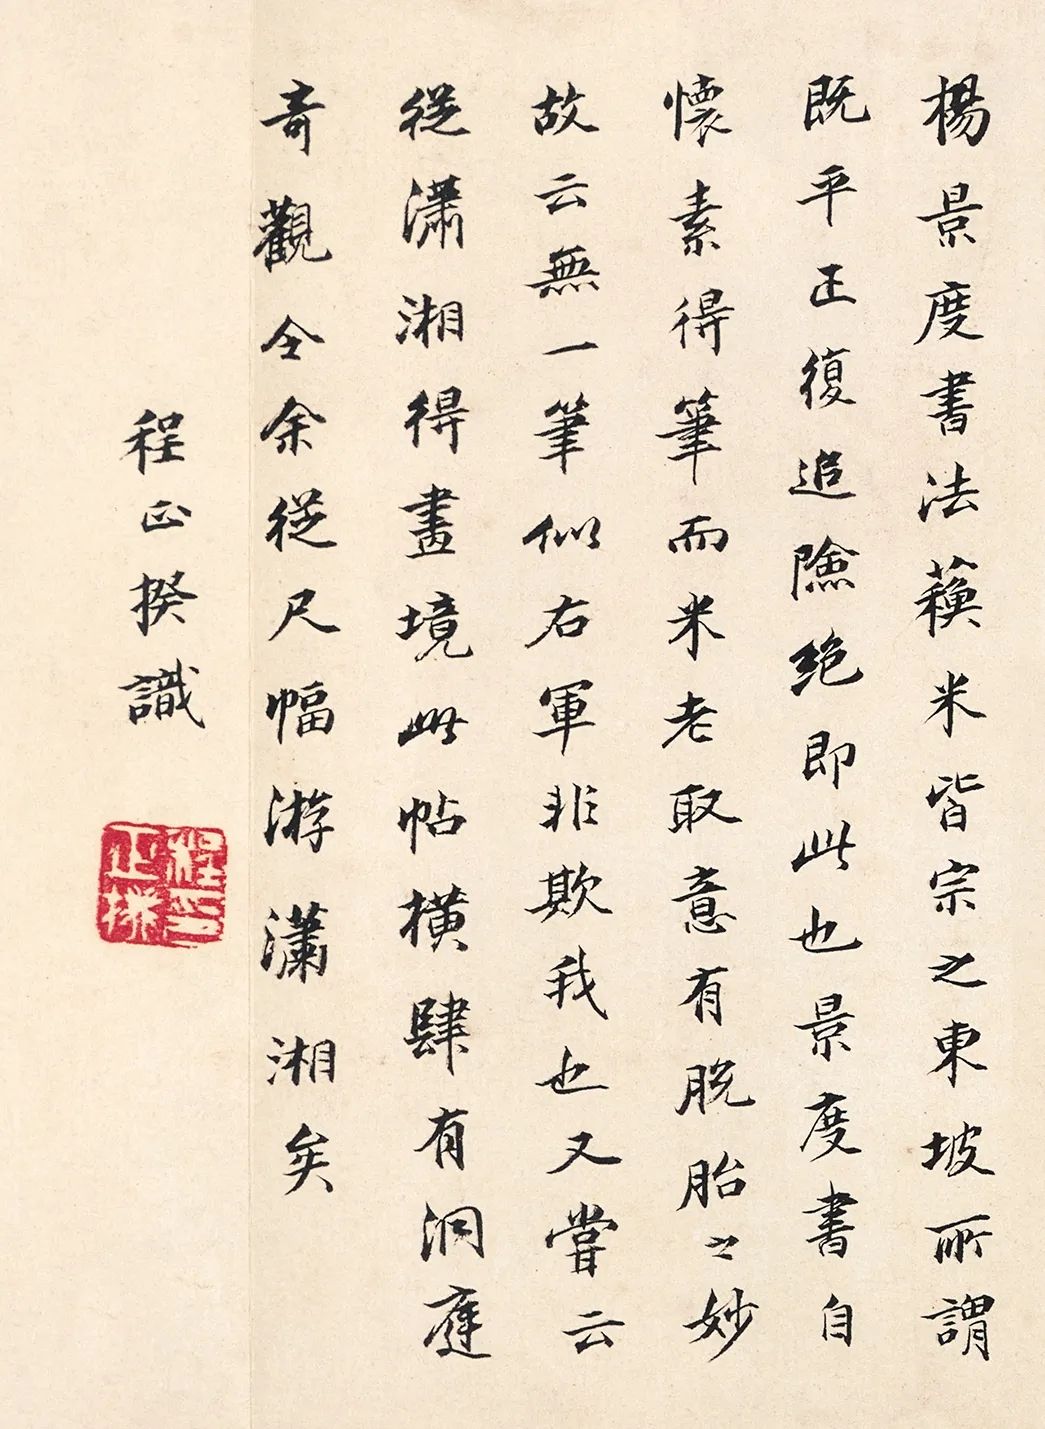 楊景度書法蘇米皆宗之東坡所謂
既平正復追險絕即此也景度書自
懷素得筆而米老取意有脫胎之妙
故云無一筆似右軍非欺我也又嘗云
從瀟湘得畫境此帖橫肆有洞庭
奇觀今余從尺幅游瀟湘矣
程正揆識
程正揆印